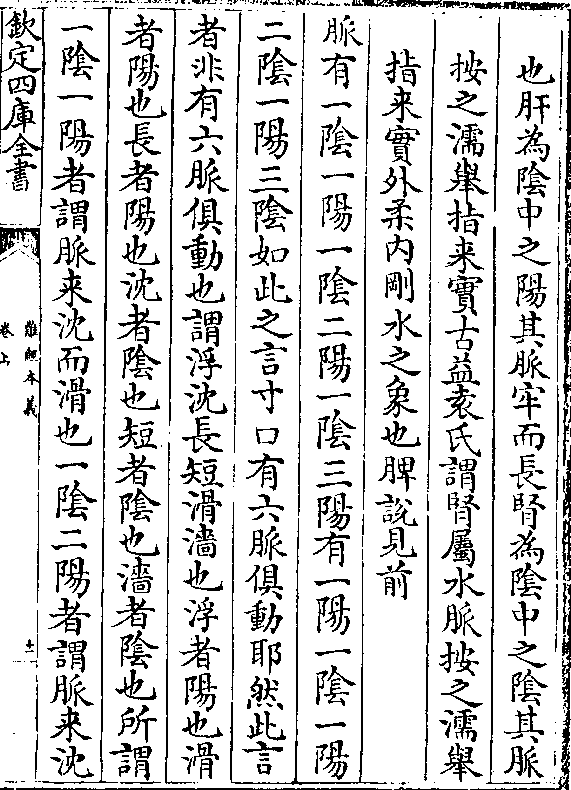 也肝為陰中之陽其脈牢而長腎為陰中之陰其脈
按之濡舉指来實古益袁氏謂腎屬水脈按之濡舉
指来實外柔内剛水之象也脾說見前
脈有一陰一陽一陰二陽一陰三陽有一陽一陰一陽
二陰一陽三陰如此之言寸口有六脈俱動耶然此言
者非有六脈俱動也謂浮沈長短滑濇也浮者陽也滑
者陽也長者陽也沈者陰也短者陰也濇者陰也所謂
一陰一陽者謂脈来沈而滑也一陰二陽者謂脈来沈
欽定四庫全書
難經本義
卷上
十二